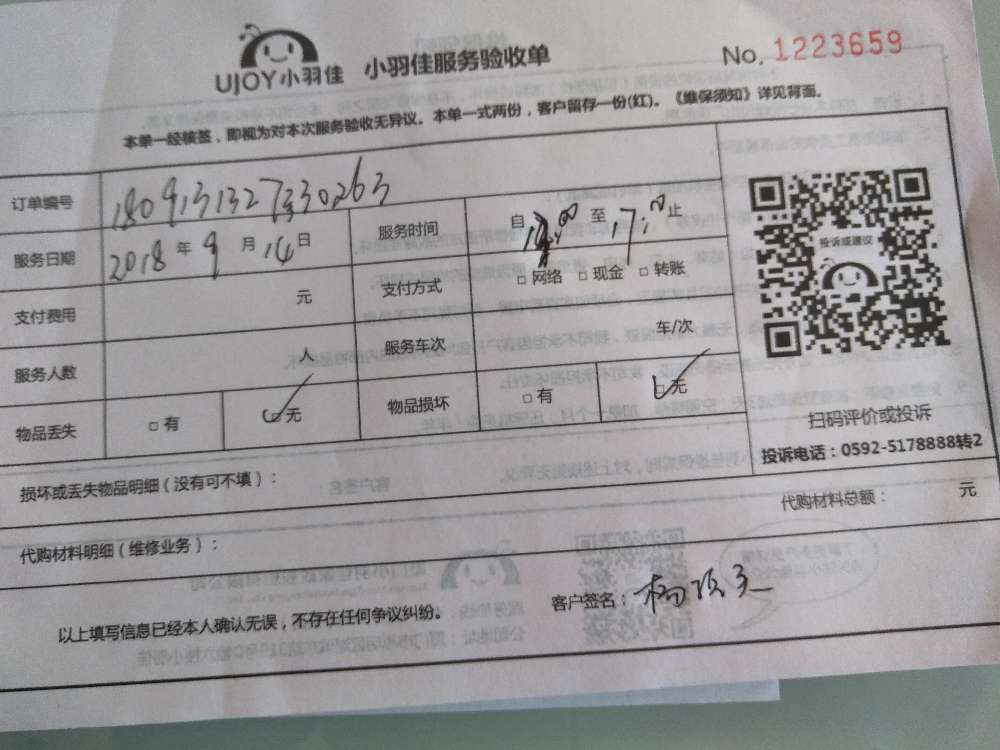 UJOY小羽佳 小羽佳服务验收单 No. 1223659
本单一经核签，即视为对本次服务验收无异议。本单一式两份，客户留存一份(红)。《维保须知》详见背面。
订单编号 1809131327330263
服务日期 2018 年 9 月 14 日 服务时间 自 至 17:00 止
支付费用 元 支付方式 □ 网络 □ 现金 □ 转账
服务人数 人 服务车次 车/次
物品丢失 □ 有 ☑ 无 物品损坏 □ 有 ☑ 无
投诉或建议
扫码评价或投诉
投诉电话：0592-5178888转2
损坏或丢失物品明细（没有可不填）：
代购材料明细（维修业务）： 代购材料总额： 元
以上填写信息已经本人确认无误，不存在任何争议纠纷。 客户签名：杨